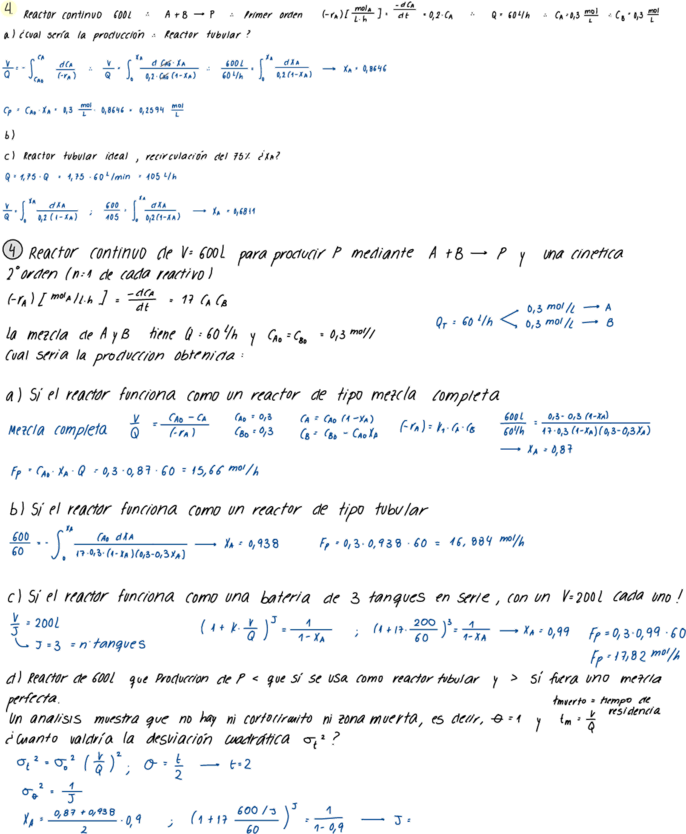 4. Reactor continuo 600L ∴ A + B → P ∴ Primer orden (-rA)[molA/L·h] = -dCA/dt = 0,2·CA ∴ Q = 60 L/h ∴ CA = 0,3 mol/L ∴ CB = 0,3 mol/L
a) ¿Cual sería la producción ∴ Reactor tubular?
V/Q = -∫_CA0^CA dCA/(-rA) ∴ V/Q = ∫_0^XA dCA0·XA/0,2·CA0(1-XA) ∴ 600L/60L/h = ∫_0^XA dXA/0,2(1-XA) → XA = 0,8646
Cp = CA0·XA = 0,3 mol/L · 0,8646 = 0,2594 mol/L
b)
c) Reactor tubular ideal, recirculación del 75% ¿XA?
Q = 1,75·Q = 1,75·60 L/min = 105 L/h
V/Q = ∫_0^XA dXA/0,2(1-XA) ; 600/105 = ∫_0^XA dXA/0,2(1-XA) → XA = 0,6811
④ Reactor continuo de V = 600L para producir P mediante A + B → P y una cinetica
2º orden (n=1 de cada reactivo)
(-rA)[molA/L·h] = -dCA/dt = 17 CA CB
QT = 60 L/h < 0,3 mol/L → A
0,3 mol/L → B
La mezcla de A y B tiene Q = 60 L/h y CA0 = CB0 = 0,3 mol/l
Cual seria la produccion obtenida:
a) Si el reactor funciona como un reactor de tipo mezcla completa
Mezcla completa V/Q = CA0 - CA/(-rA) CA0 = 0,3 CA = CA0(1-XA) (-rA) = K1·CA·CB 600L/60L/h = 0,3 - 0,3(1-XA)/17·0,3(1-XA)(0,3-0,3XA)
CB0 = 0,3 CB = CB0 - CA0XA
→ XA = 0,87
Fp = CA0·XA·Q = 0,3·0,87·60 = 15,66 mol/h
b) Si el reactor funciona como un reactor de tipo tubular
600/60 = -∫_0^XA CA0 dXA/17·0,3·(1-XA)(0,3-0,3XA) → XA = 0,938 Fp = 0,3·0,938·60 = 16,884 mol/h
c) Si el reactor funciona como una bateria de 3 tanques en serie, con un V=200L cada uno!
V/J = 200L (1 + K·V/Q)^J = 1/1-XA ; (1+17·200/60)^3 = 1/1-XA → XA = 0,99 Fp = 0,3·0,99·60
↳ J = 3 = nº tanques
Fp = 17,82 mol/h
d) Reactor de 600L que Produccion de P < que si se usa como reactor tubular y > si fuera uno mezcla
perfecta.
tmuerto = tiempo de
residencia
Un analisis muestra que no hay ni cortocircuito ni zona muerta, es decir, θ = 1 y tm = V/Q
¿Cuanto valdría la desviación cuadrática σt²?
σt² = σθ² (V/Q)² ; θ = t/2 → t=2
σθ² = 1/J
XA = 0,87+0,938/2 = 0,9 ; (1+17 600/J/60)^J = 1/1-0,9 → J =